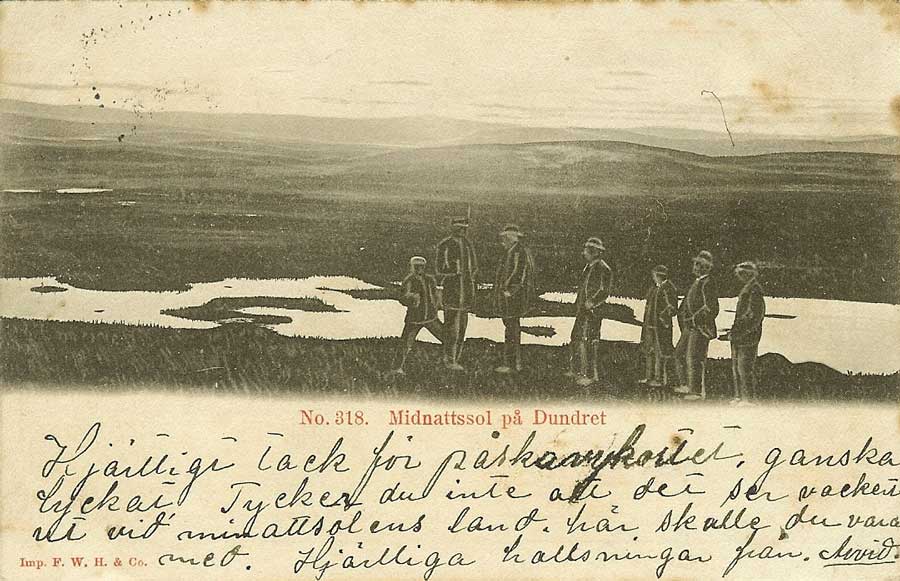 No. 318. Midnattssol på Dundret
Hjärtligt tack för påskavykortet, ganska
lyckat Tycker du inte att det ser vackert
ut vid minattsolens land, här skulle du vara
med. Hjärtliga hälsningar från. Arvid.
Imp. F. W. H. & Co.